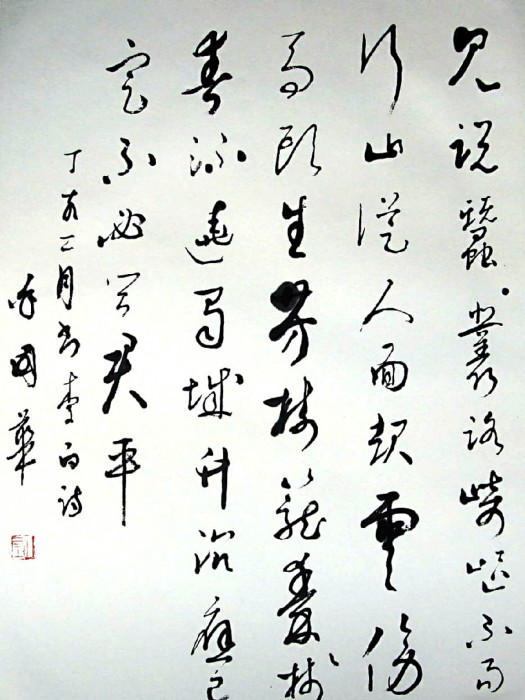 见説蠶叢路崎嶇不易
行山從人面起雲傍
马头生芳树籠秦棧
春流遶蜀城升沉應已
定不必问君平
丁亥二月书李白詩
國華